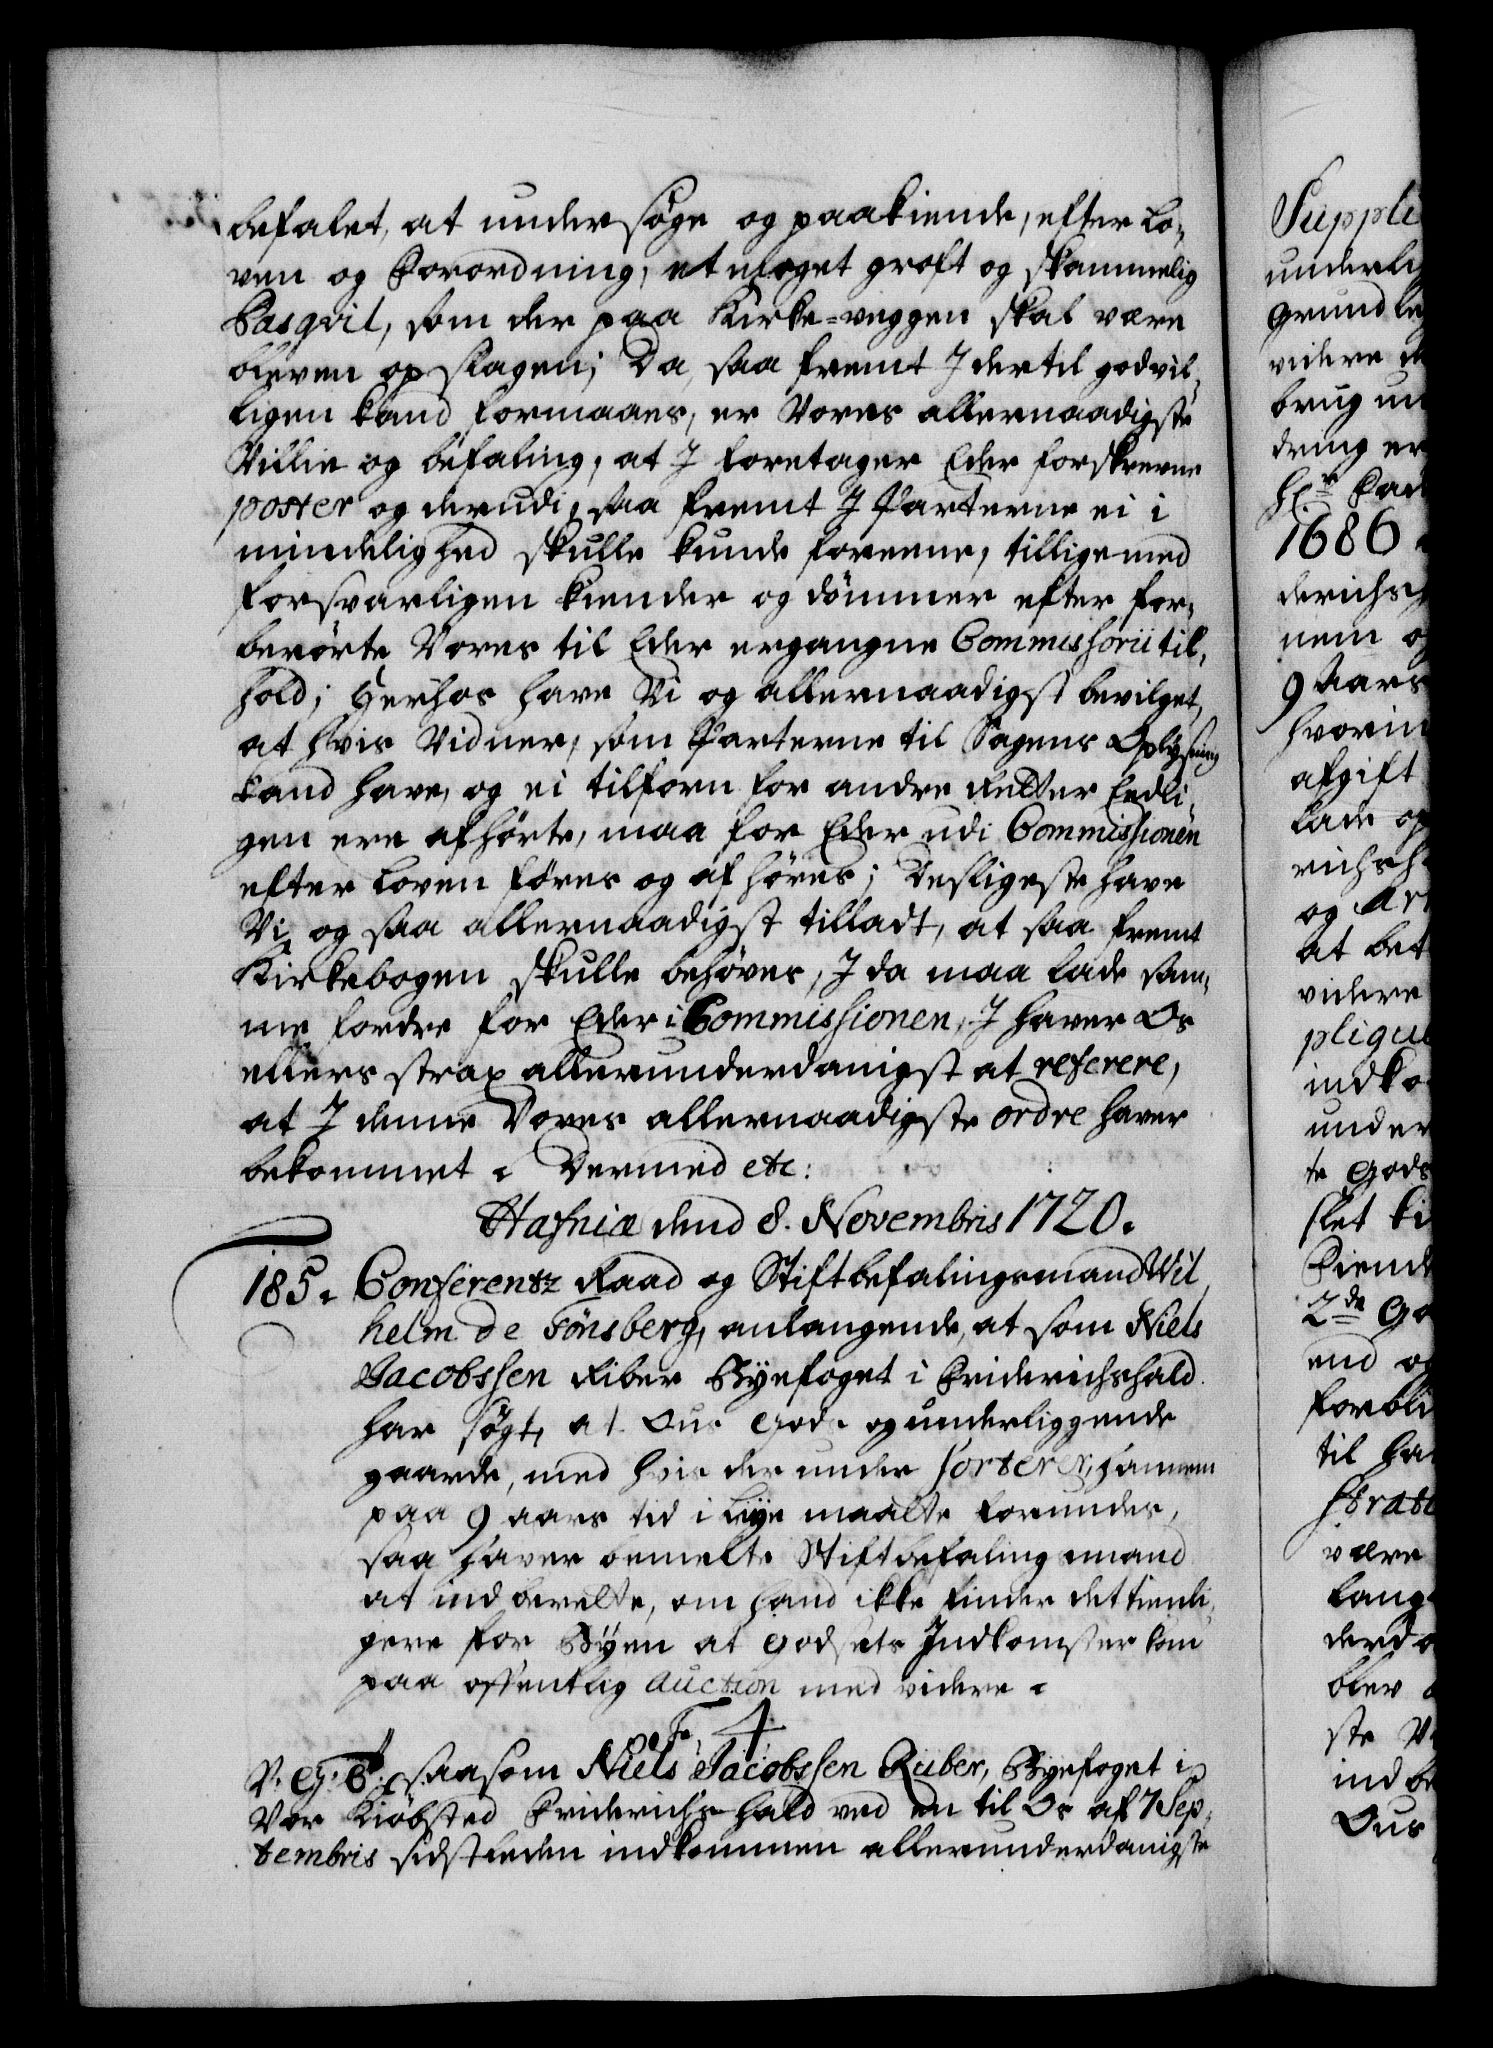 befalet, at undersøge og paakiende, efter Lo-
ven og Forordning, et meget groft og skammelig
Pasqvil, som der paa Kirke-veggen skal være
bleven opslagen; Da, saa fremt I dertil godvil-
ligen kand formaaes, er Vores allernaadigste
Villie og befaling, at I foretager Eder forskrevne
poster og derudi, saa fremt I Parterne ei i
mindelighed skulle kunde foreene, tilligemed
forsvarligen kiender og dømmer efter for-
berørte Vores til Eder ergangne Commissorii til-
hold; Herhos have Vi og allernaadigst bevilget,
at hvis Vidner, som Parterne til Sagens Oplysning
kand have, og ei tilforn for andre Retter Eedli-
gen ere afhørte, maa for Eder udi Commissionen
efter Loven føres og afhøres; Desligeste have
Vi og saa allernaadigst tilladt, at saa fremt
Kirkebogen skulle behøves, I da maa lade sam-
me fordre for Eder i Commissionen, I haver Os
ellers strax allerunderdanigst at referere,
at I denne Vores allernaadigste ordre haver
bekommet. Dermed etc:
Hafniæ dend 8. Novembris 1720.
185. Conferentz Raad og Stiftbefalingsmand Wil
helm de Tönsberg, anlangende, at som Niels
Jacobssen Riber Byefoget i Friderichshald
har søgt, at Ous Gods og underliggende
gaarde, med hvis der under sorterer, hannem
paa 9 aars tid i Leye maatte forundes,
saa haver bemelte Stiftbefalingsmand
at indberette, om hand ikke finder det tienli-
gere for Byen at Godsets Indkomster kom
paa offentlig Auction med videre.
F 4.
V. G. T. saasom Niels Jacobssen Riiber, Byefoget i
Vor Kiøbsted Friderichshald ved en til Os af 7 Sep-
tembris sidstleden indkommen allerunderdanigste
Supple
underli
grund le
videre
brug un
dring er
1686
derichs
nem og
9 Aars
hvorim
afgift
lade op
richsh
og Ar
at bet
videre
pliqu
indko
under
te Gods
slet ki
kiende
2de Go
end og
forbli
til ha
være
lang
blev
ste V
ind be
Ous